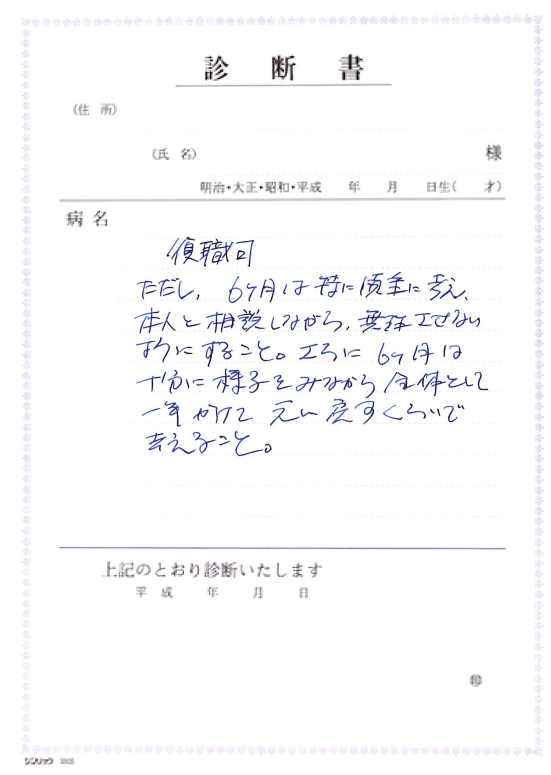 診断書
（住所）
（氏名） 様
明治・大正・昭和・平成 年 月 日生（ 才）
病名
復職可
ただし、6ヶ月は特に慎重に考え、
本人と相談しながら、無理させない
ようにすること。さらに6ヶ月は
十分に様子をみながら全体として
一年かけて元に戻すくらいで
考えること。
上記のとおり診断いたします
平成 年 月 日
印